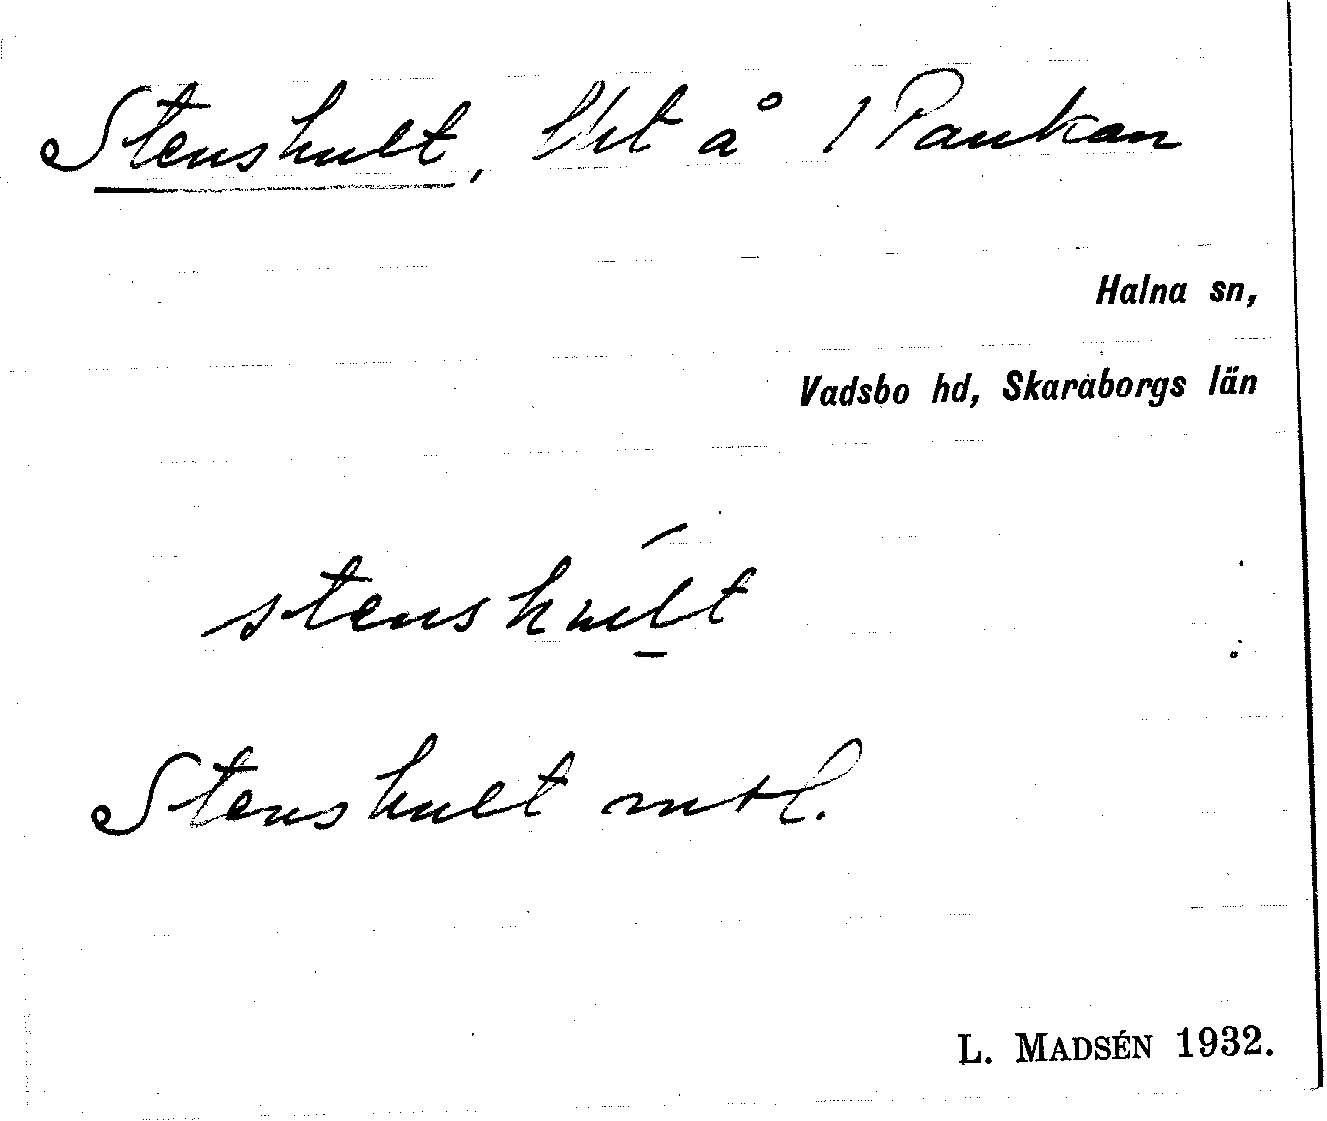 Stenshult, lht å 1 Pankan
Halna sn,
Vadsbo hd, Skaraborgs län
stenshult
Stenshult mtl.
L. MADSÉN 1932.